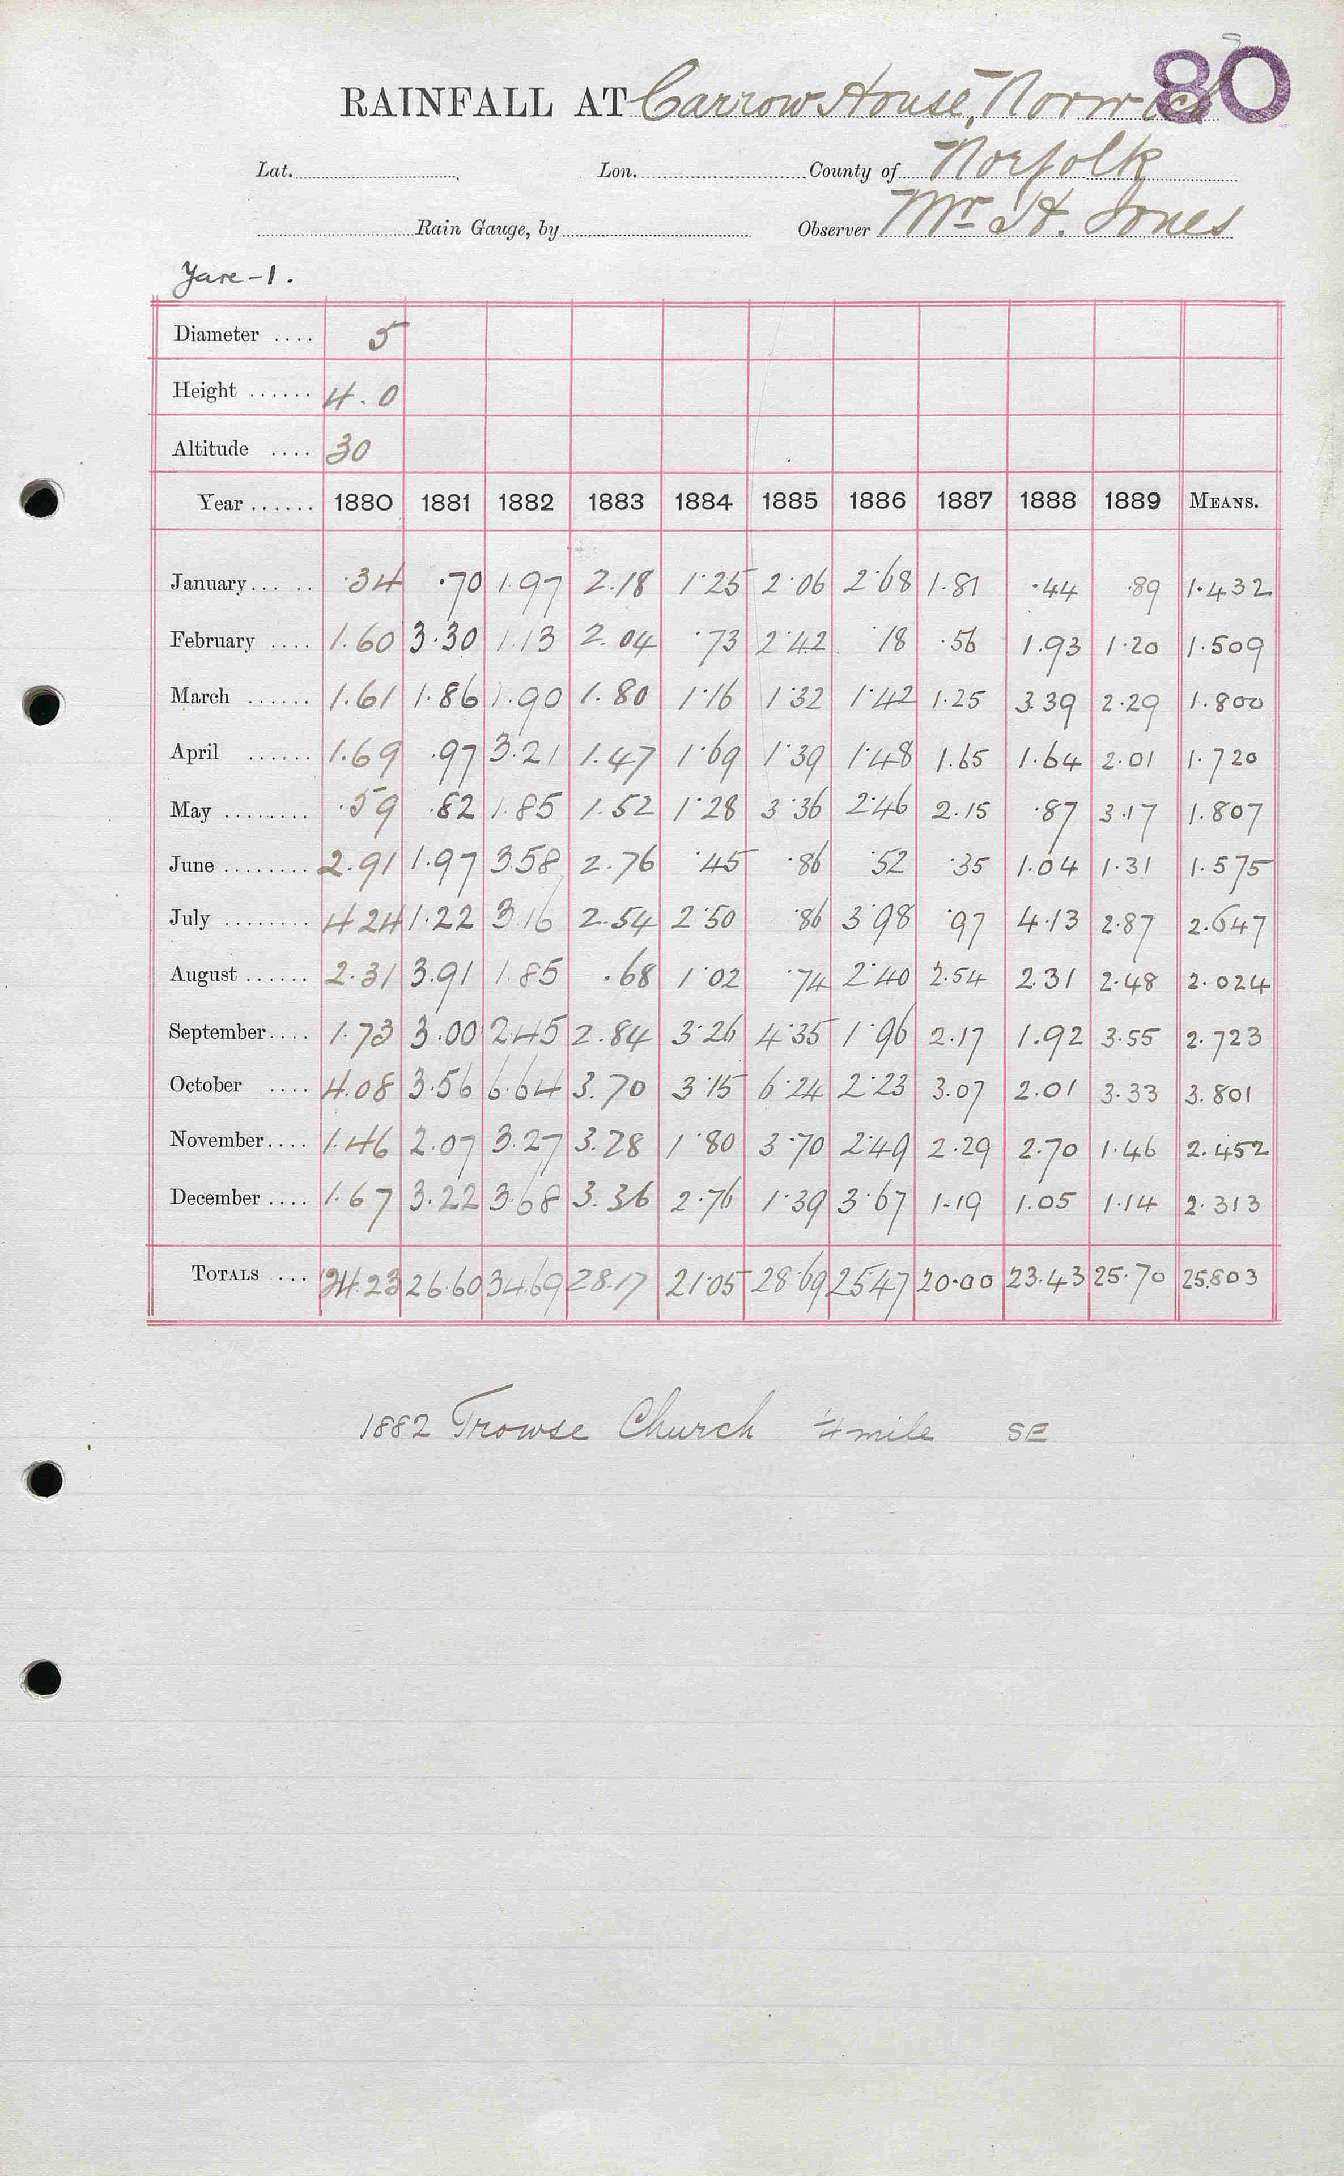 80
RAINFALL AT Carrow House, Norwich
Lat. Lon. County of Norfolk
Rain Gauge, by Observer Mr H. Jones
Yare-1.
Diameter .... 5
Height ...... 4.0
Altitude .... 30
Year ...... 1880 1881 1882 1883 1884 1885 1886 1887 1888 1889 MEANS.
January... .. .34 .70 1.97 2.18 1.25 2.06 2.68 1.81 .44 .89 1.432
February .... 1.60 3.30 1.13 2.04 .73 2.42 .18 .56 1.93 1.20 1.509
March ...... 1.61 1.86 1.90 1.80 1.16 1.32 1.42 1.25 3.39 2.29 1.800
April ...... 1.69 .97 3.21 1.47 1.69 1.39 1.48 1.65 1.64 2.01 1.720
May ........ .59 .82 1.85 1.52 1.28 3.36 2.46 2.15 .87 3.17 1.807
June ........ 2.91 1.97 3.58 2.76 .45 .86 .52 .35 1.04 1.31 1.575
July ........ 4.24 1.22 3.16 2.54 2.50 .86 3.98 .97 4.13 2.87 2.647
August ...... 2.31 3.91 1.85 .68 1.02 .74 2.40 2.54 2.31 2.48 2.024
September.... 1.73 3.00 2.45 2.84 3.26 4.35 1.96 2.17 1.92 3.55 2.723
October .... 4.08 3.56 6.64 3.70 3.15 6.24 2.23 3.07 2.01 3.33 3.801
November.... 1.46 2.07 3.27 3.28 1.80 3.70 2.49 2.29 2.70 1.46 2.452
December .... 1.67 3.22 3.68 3.36 2.76 1.39 3.67 1.19 1.05 1.14 2.313
TOTALS .... 24.23 26.60 34.69 28.17 21.05 28.69 25.47 20.00 23.43 25.70 25.803
1882 Trowse Church ¼ mile SE